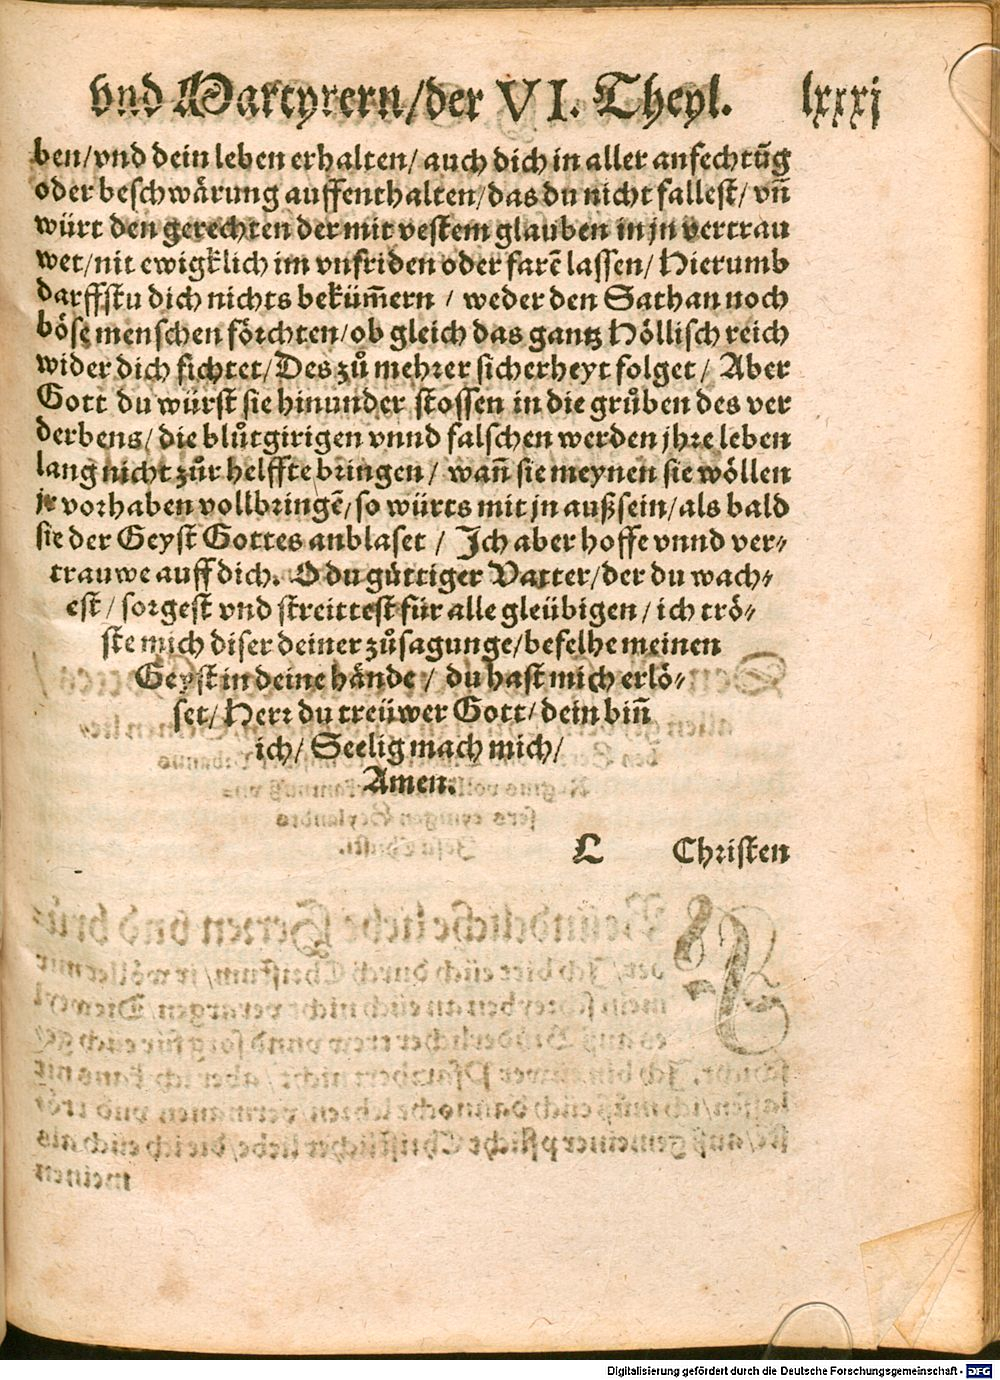 vnd Martyrern/der VI. Theyl. lxxxj
ben/vnd dein leben erhalten/ auch dich in aller anfechtūg
oder beschwärung auffenthalten/das du nicht fallest/ vn̄
würt den gerechten der mit vestem glauben in jn vertrau
wet/nit ewigklich im vnfriden oder farē lassen/ Hierumb
darffstu dich nichts beküm̄ern / weder den Sathan noch
böse menschen förchten/ob gleich das gantz Höllisch reich
wider dich fichtet/Des zů mehrer sicherheyt folget/ Aber
Gott du würst sie hinunder stossen in die grůben des ver
derbens/die blůtgirigen vnnd falschen werden jhre leben
lang nicht zůr helffte bringen/ wañ sie meynen sie wöllen
jr vorhaben vollbringē/so würts mit jn außsein/als bald
sie der Geyst Gottes anblaset / Ich aber hoffe vnnd ver-
trauwe auff dich. O du güttiger Vatter/der du wach-
est/ sorgest vnd streittest für alle gleübigen/ich trö-
ste mich diser deiner zůsagunge/befelhe meinen
Geyst in deine hände/ du hast mich erlö-
set/Herr du treüwer Gott/dein biñ
ich/ Seelig mach mich/
Amen.
L Christen
Digitalisierung gefördert durch die Deutsche Forschungsgemeinschaft - DFG